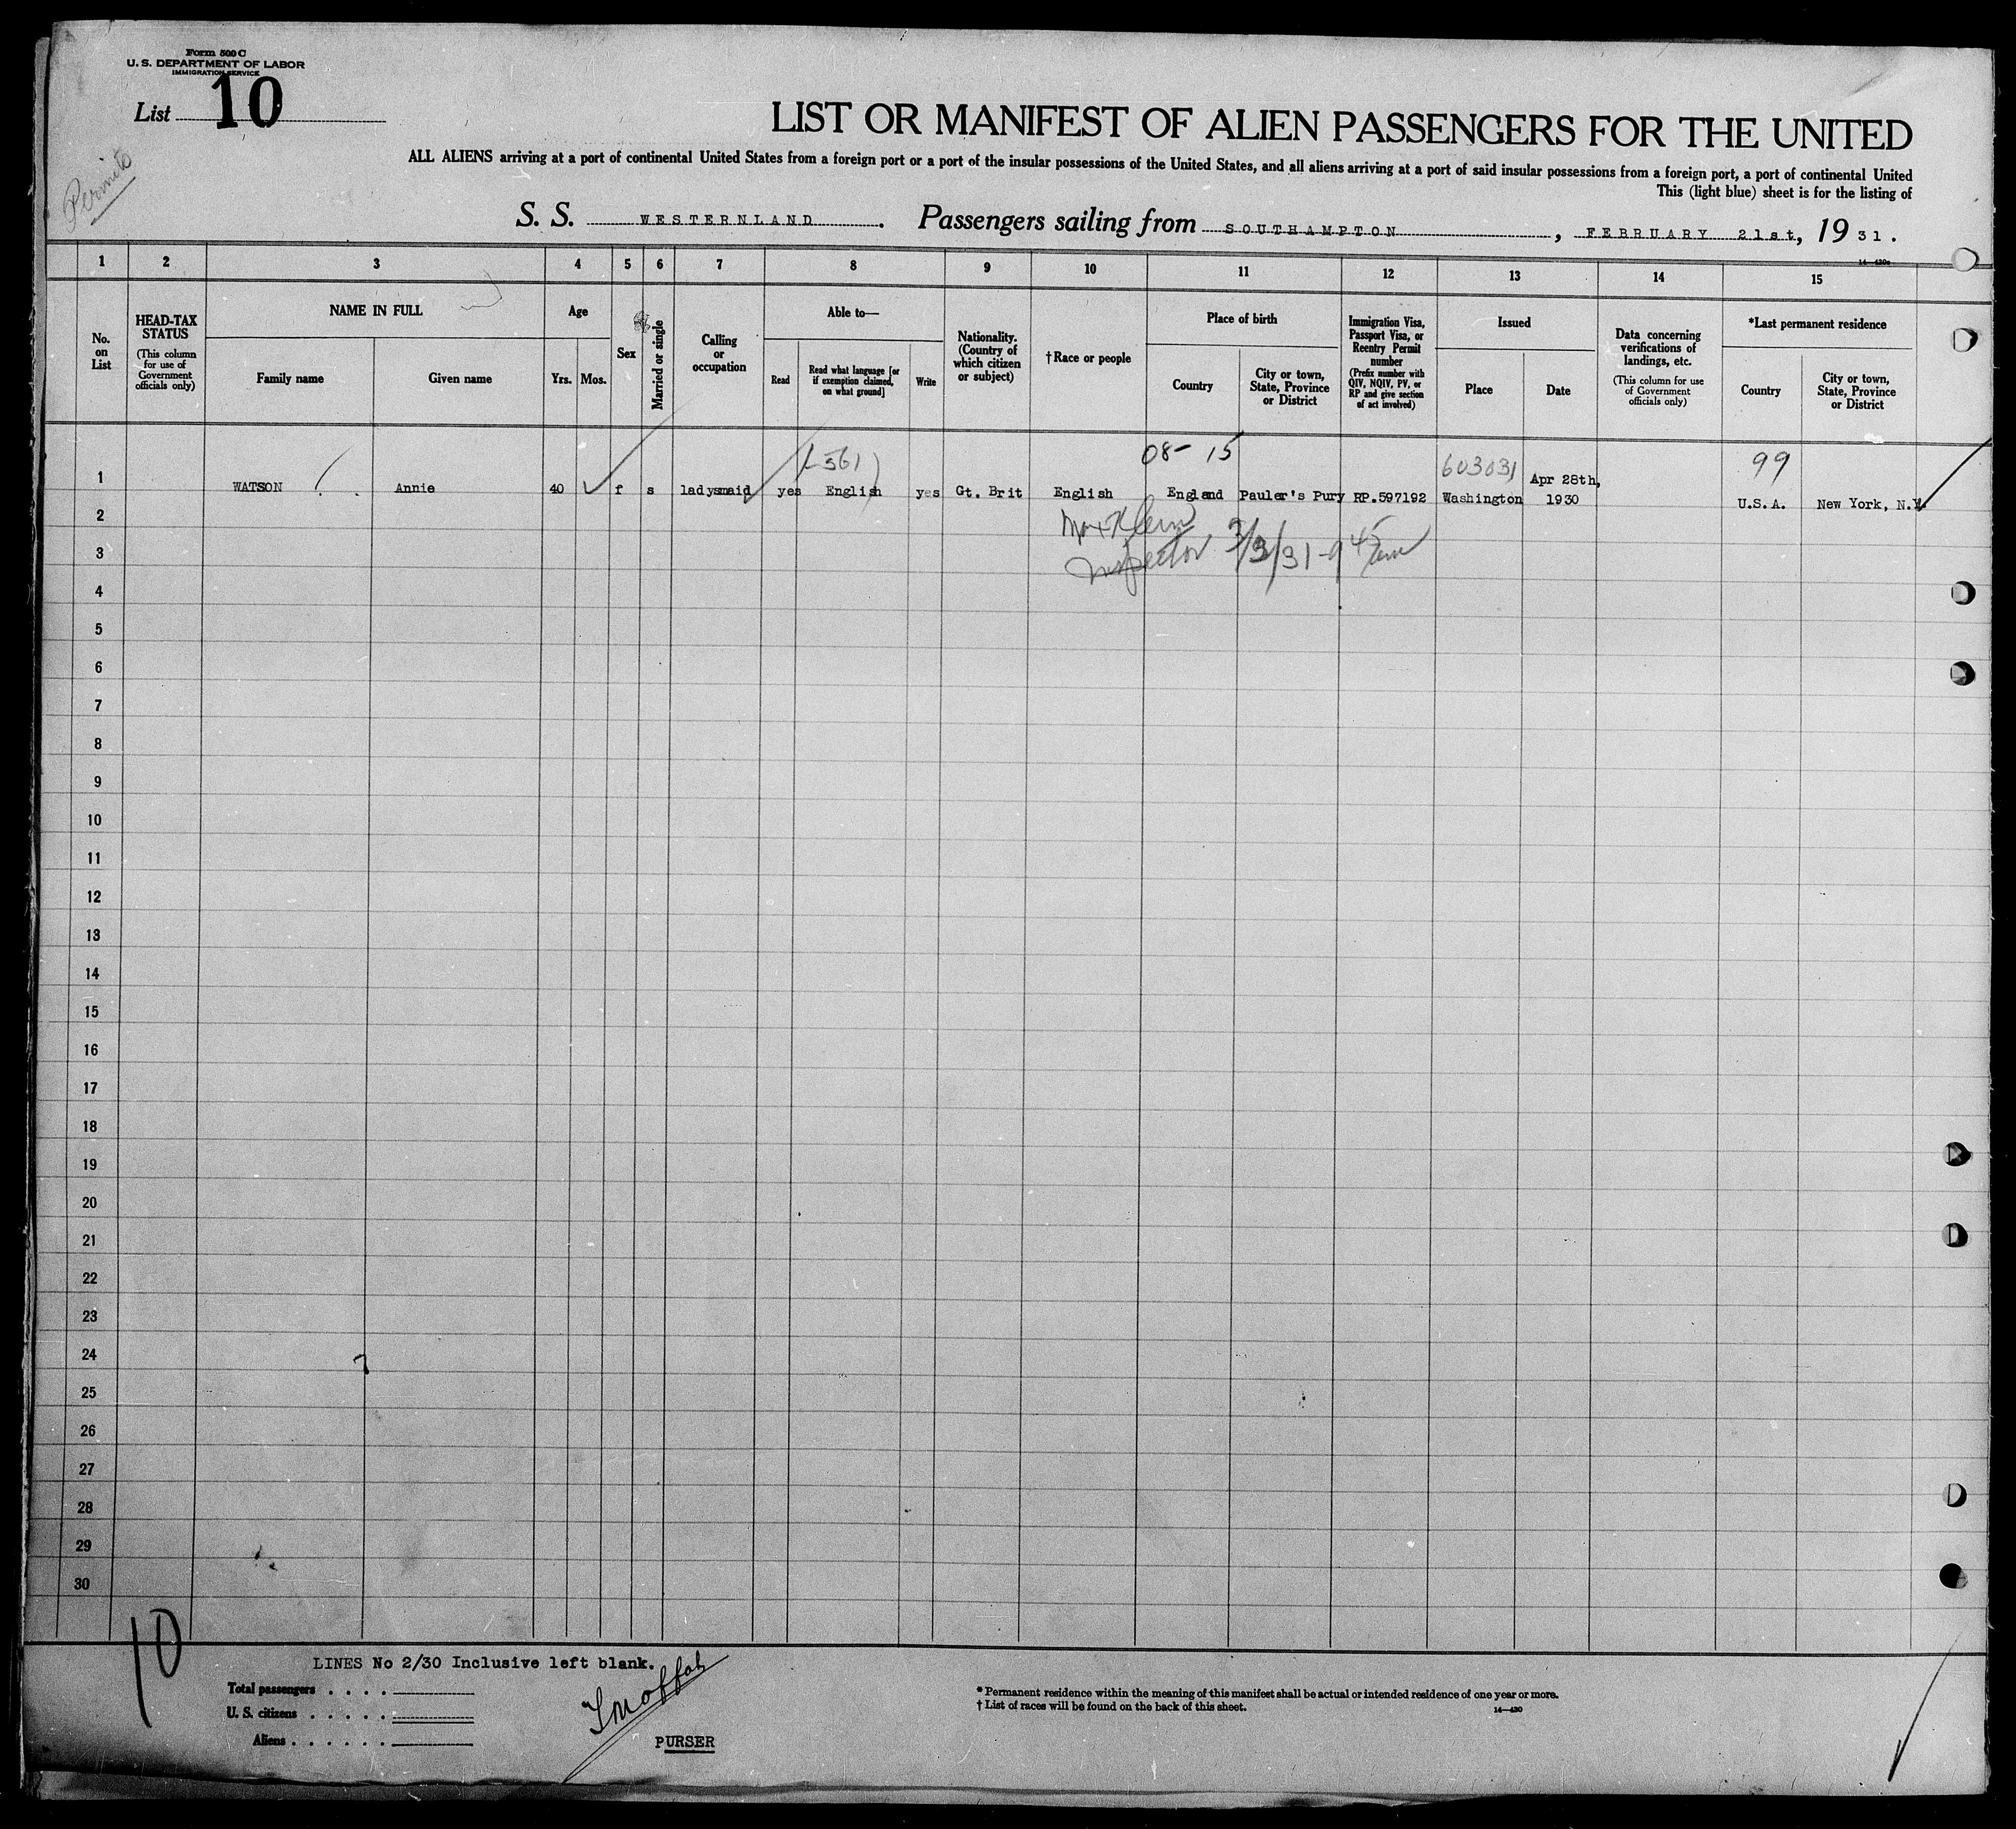 Form 500 C
U. S. DEPARTMENT OF LABOR
IMMIGRATION SERVICE
List 10
Permits
LIST OR MANIFEST OF ALIEN PASSENGERS FOR THE UNITED
ALL ALIENS arriving at a port of continental United States from a foreign port or a port of the insular possessions of the United States, and all aliens arriving at a port of said insular possessions from a foreign port, a port of continental United
This (light blue) sheet is for the listing of
S. S. WESTERNLAND. Passengers sailing from SOUTHAMPTON, FEBRUARY 21st, 19 31.
14-430a
1 2 3 4 5 6 7 8 9 10 11 12 13 14 15
No. on List
HEAD-TAX STATUS (This column for use of Government officials only)
NAME IN FULL
Family name Given name
Age
Yrs. Mos.
Sex
Married or single
Calling or occupation
Able to—
Read Read what language [or if exemption claimed, on what ground] Write
Nationality. (Country of which citizen or subject)
†Race or people
Place of birth
Country City or town, State, Province or District
Immigration Visa, Passport Visa, or Reentry Permit number (Prefix number with QIV, NQIV, PV, or RP and give section of act involved)
Issued
Place Date
Data concerning verifications of landings, etc. (This column for use of Government officials only)
*Last permanent residence
Country City or town, State, Province or District
561 08- 15 603031 99
1 WATSON Annie 40 f s ladysmaid yes English yes Gt. Brit English England Pauler's Pury RP.597192 Washington Apr 28th, 1930 U.S.A. New York, N.Y.
2 Max Klein
3 Inspector 3/3/31-9 45 am
4
5
6
7
8
9
10
11
12
13
14
15
16
17
18
19
20
21
22
23
24
25
26
27
28
29
30
10
LINES No 2/30 Inclusive left blank.
Total passengers . . . .
U. S. citizens . . . . .
Aliens . . . . . .
PURSER
* Permanent residence within the meaning of this manifest shall be actual or intended residence of one year or more.
† List of races will be found on the back of this sheet.
14-430